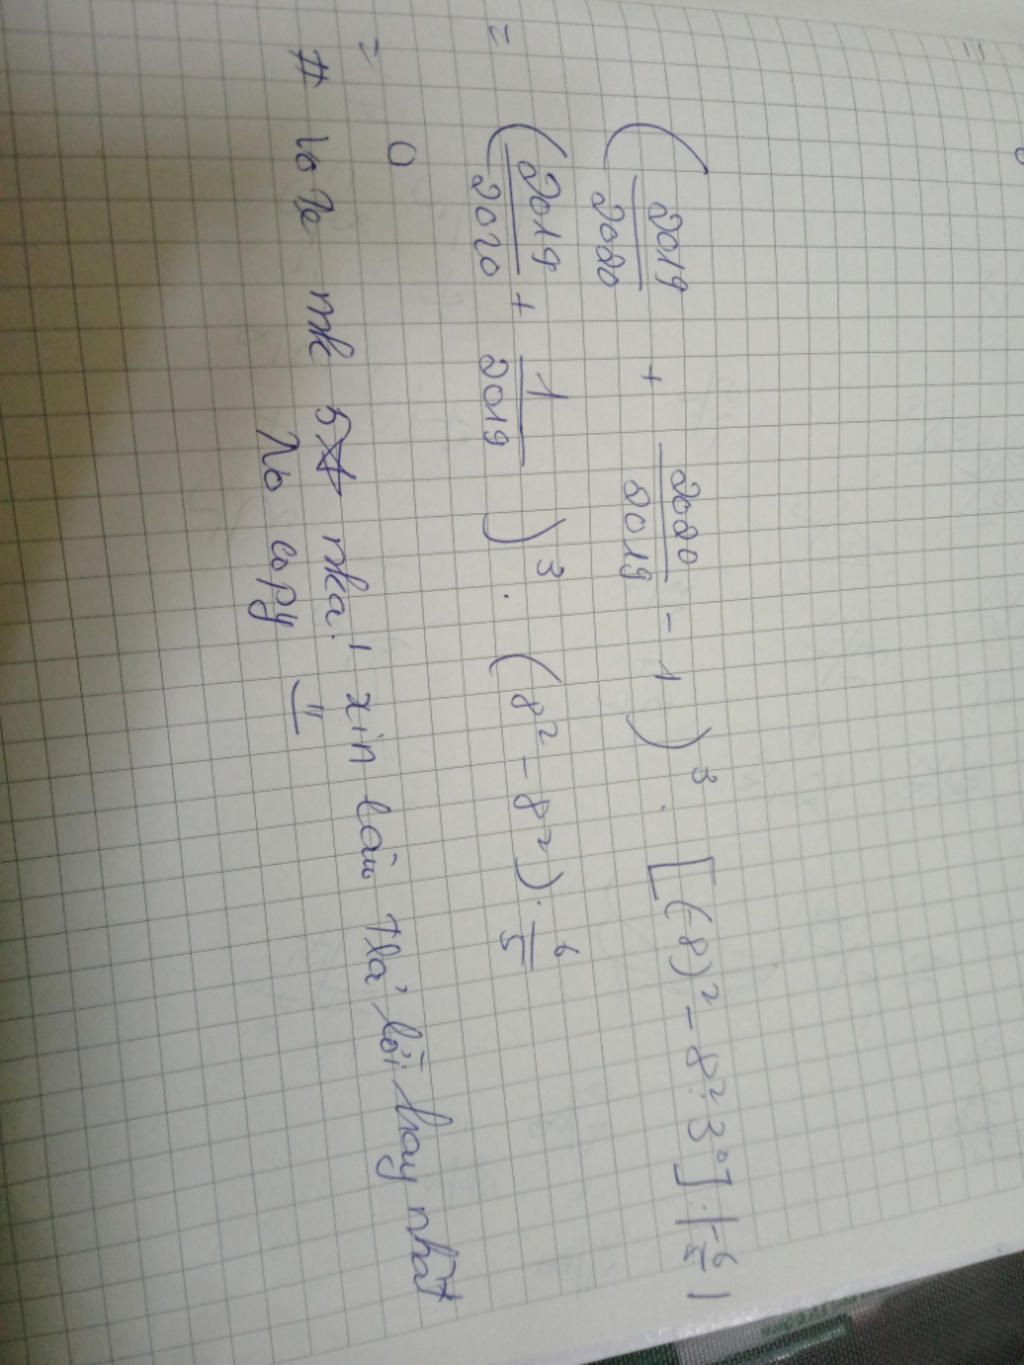 =
(2019/2020 + 2020/2019 - 1)³ . [(-8)² - 8² : 3⁰] . |-6/5|
= (2019/2020 + 1/2019)³ . (8² - 8²) . 6/5
= 0
# vote mk 5☆ nha! xin làm trả lời hay nhất
No copy